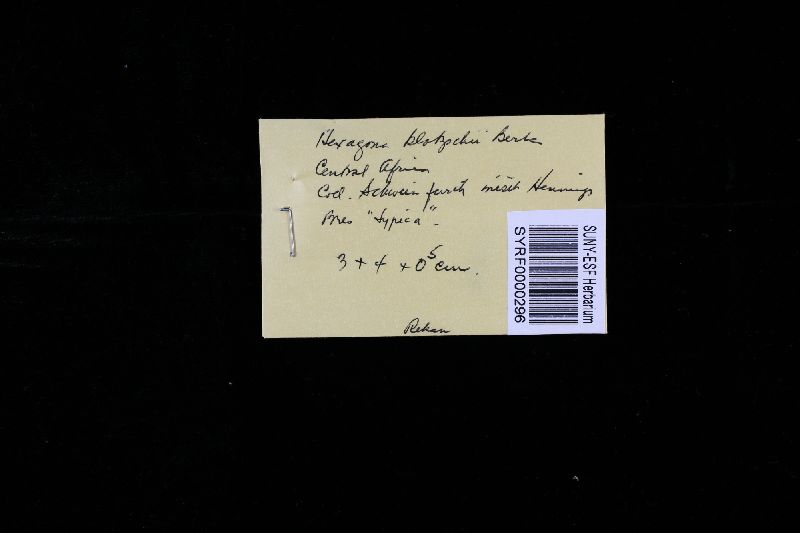 Hexagona klotzschii Berk
Central Africa
Coll. Schweinfurth misit Hennings
Bres "typica".
3 + 4 + 0⁵ cm.
SUNY-ESF Herbarium
SYRF0000296